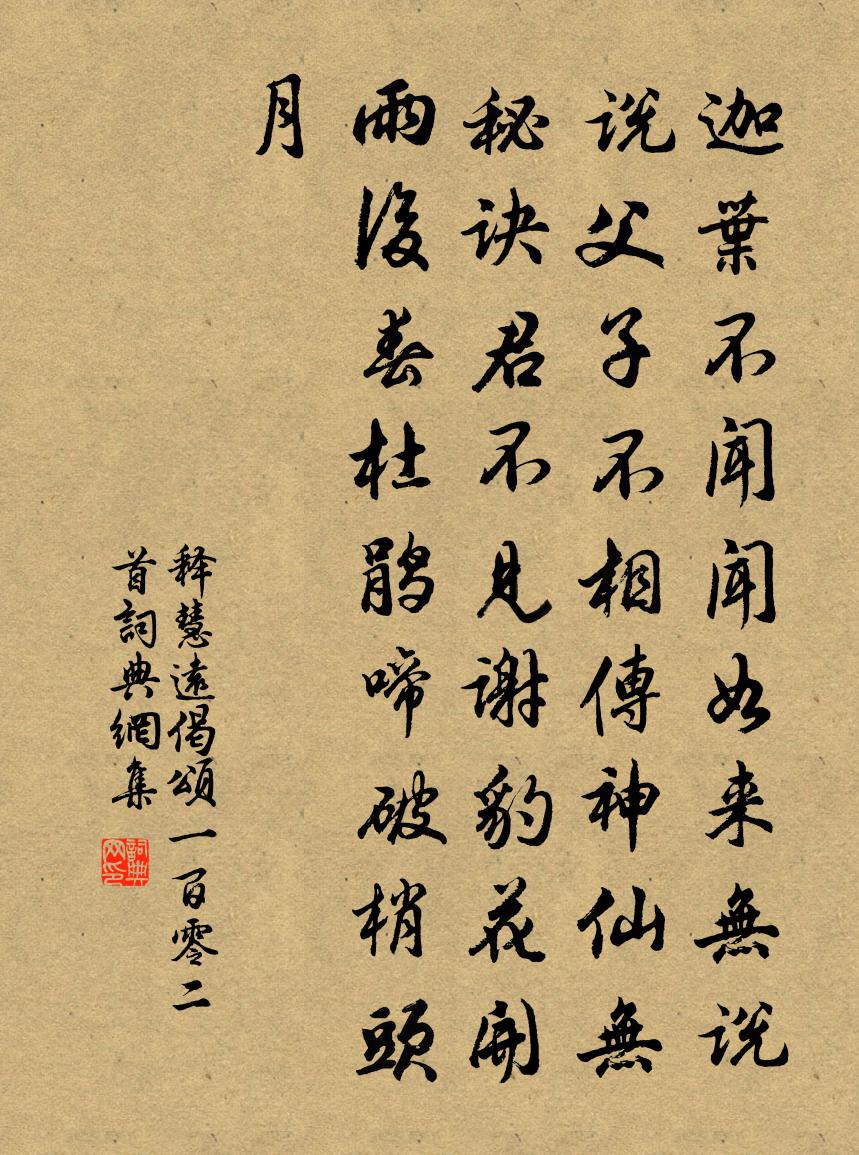 迦葉不聞聞如来無說
説父子不相傳神仙無
秘訣君不見謝豹花開
雨後春杜鹃啼破梢頭
月
释慧遠偈頌一百零二
首詞典網集
詞典
网印